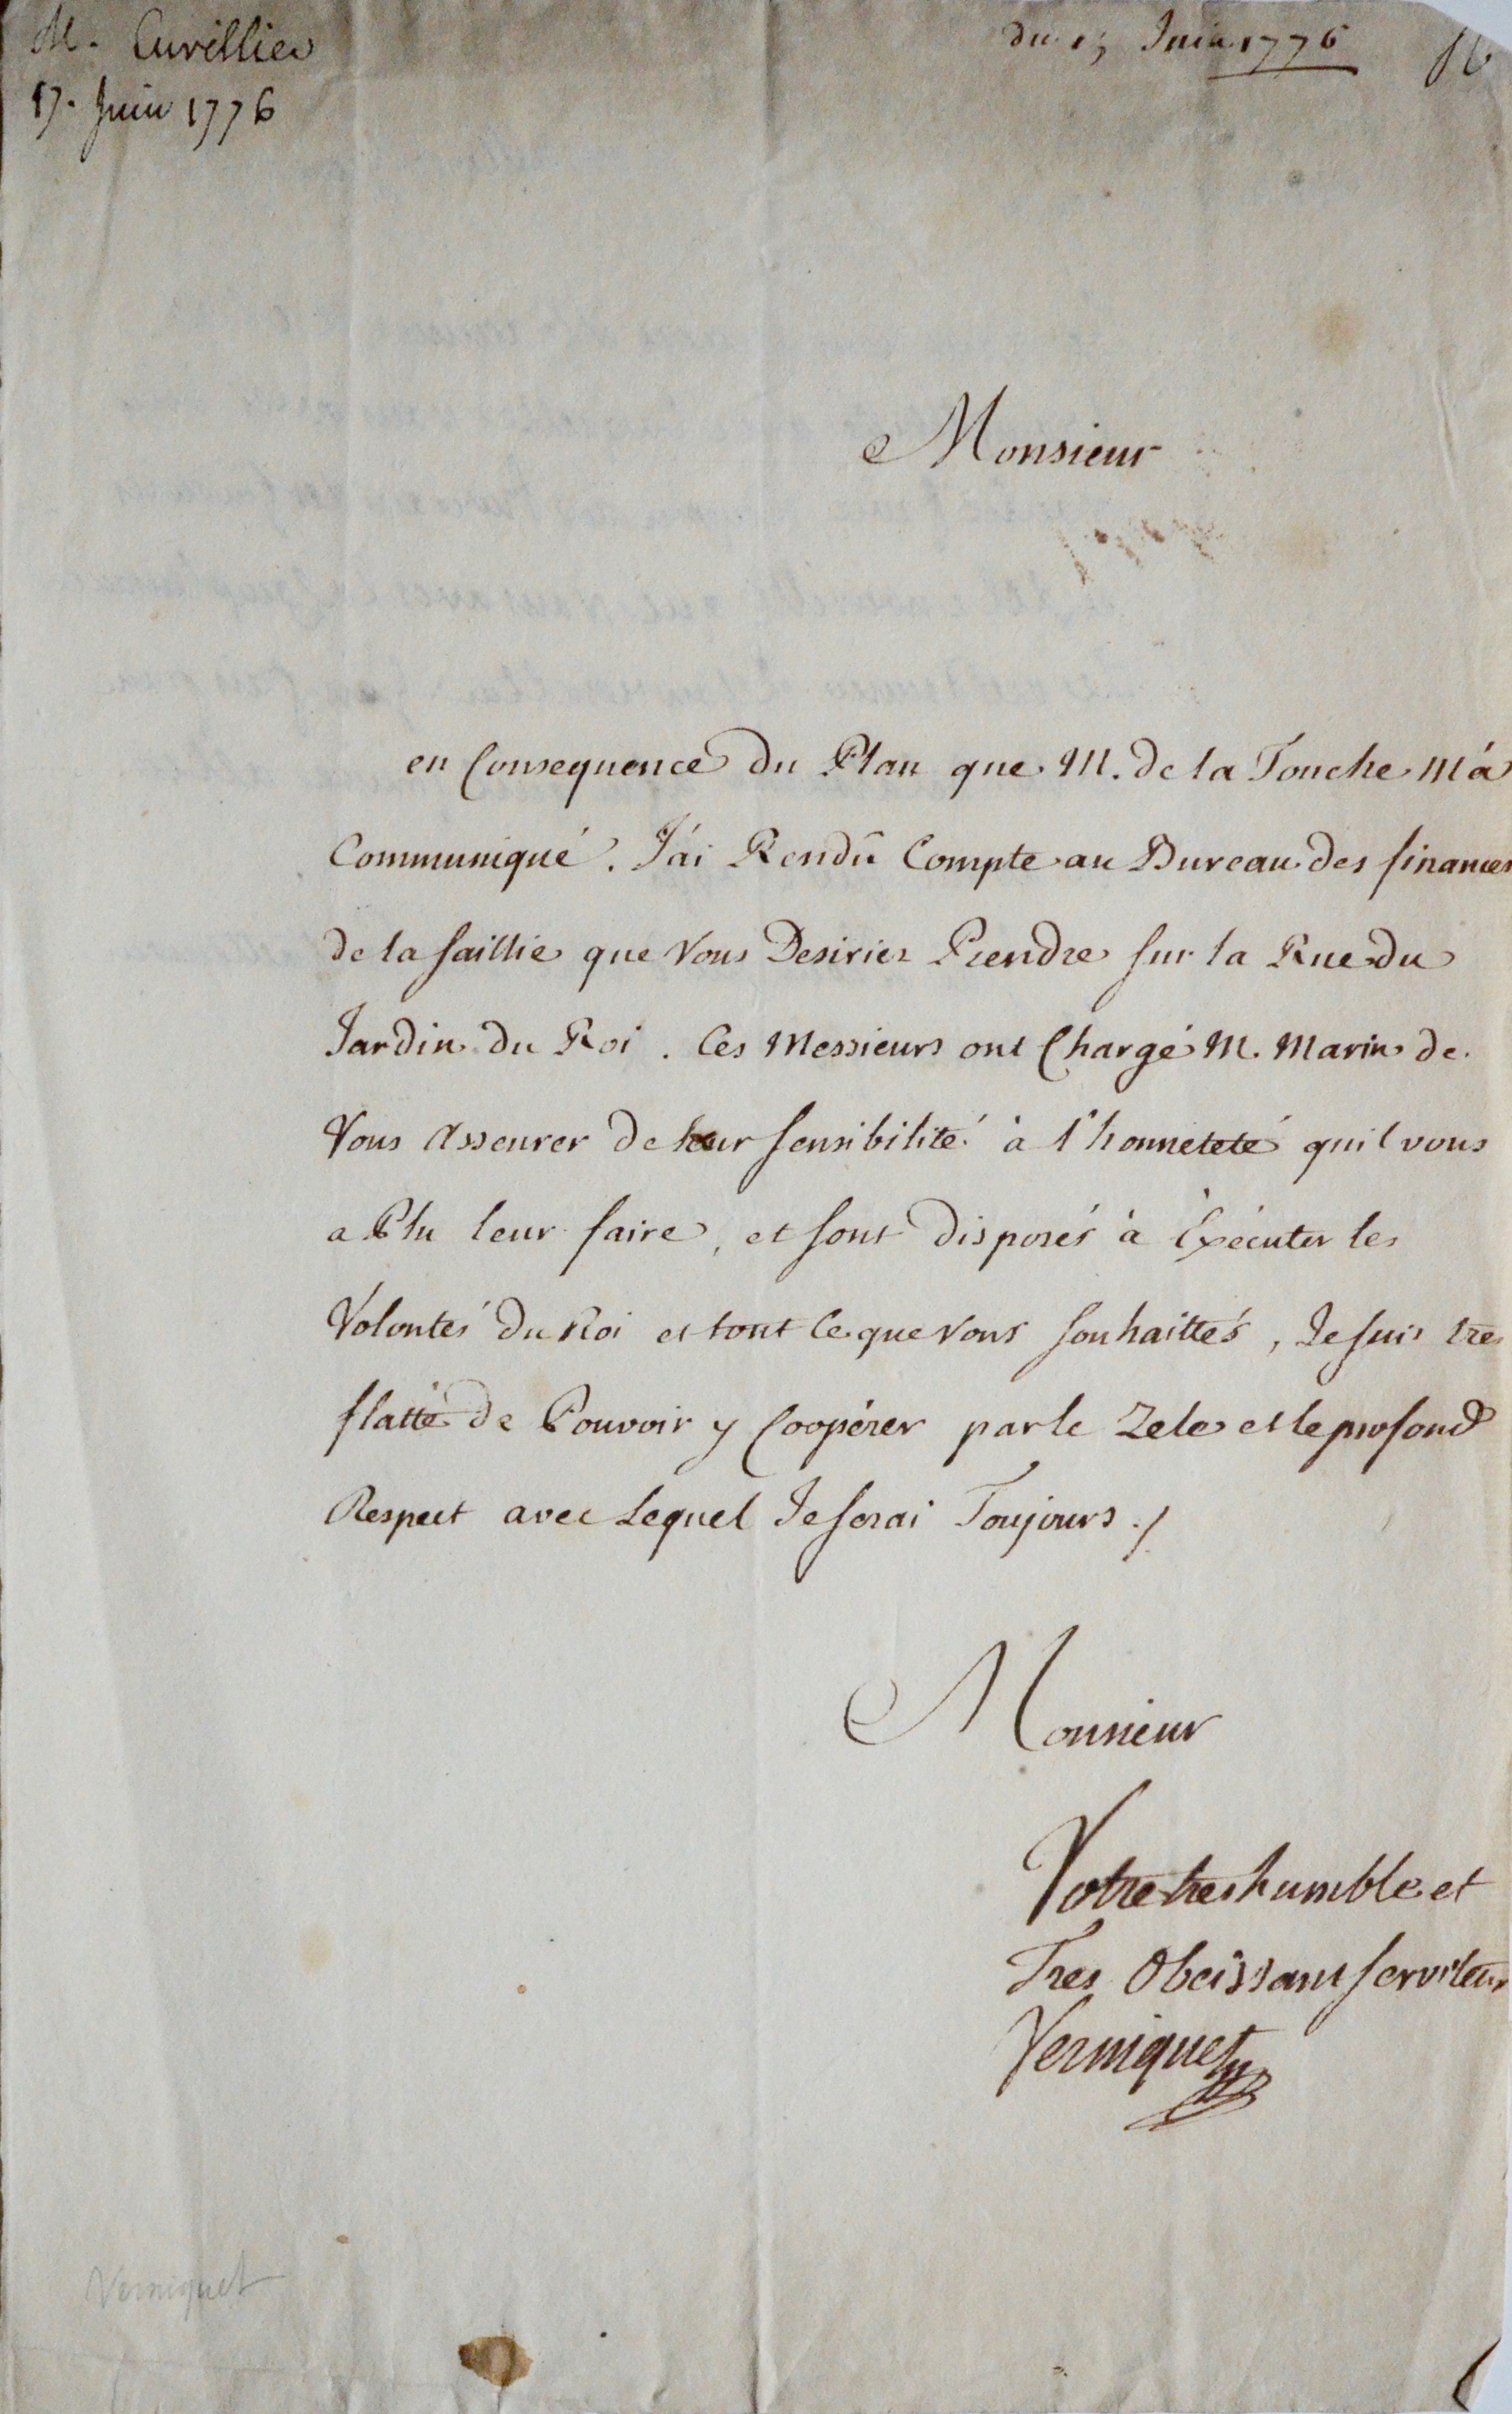 M. Cuvillier
17. Juin 1776
du 17 Juin 1776
Monsieur
en Consequence du Plan que M. de la Touche M'á
Communiqué. J'ái Rendû Compte au Bureau des finances
de la saillie que Vous Desiriez Prendre sur la Rue du
Jardin du Roi. Ces Messieurs ont Chargé M. Marin de
Vous Asseurer de leur sensibilité à l'honneteté qu'il vous
a Plu leur faire, et sont disposés à Éxécuter les
Volontés du Roi et tout Ce que vous souhaittés, Je suis tres
flatté de Pouvoir y Coopérer par le Zele et le profond
Respect avec Lequel Je serai Toujours ./.
Monsieur
Votre tres humble et
Tres Obeissant serviteur
Verniquet
Verniquet